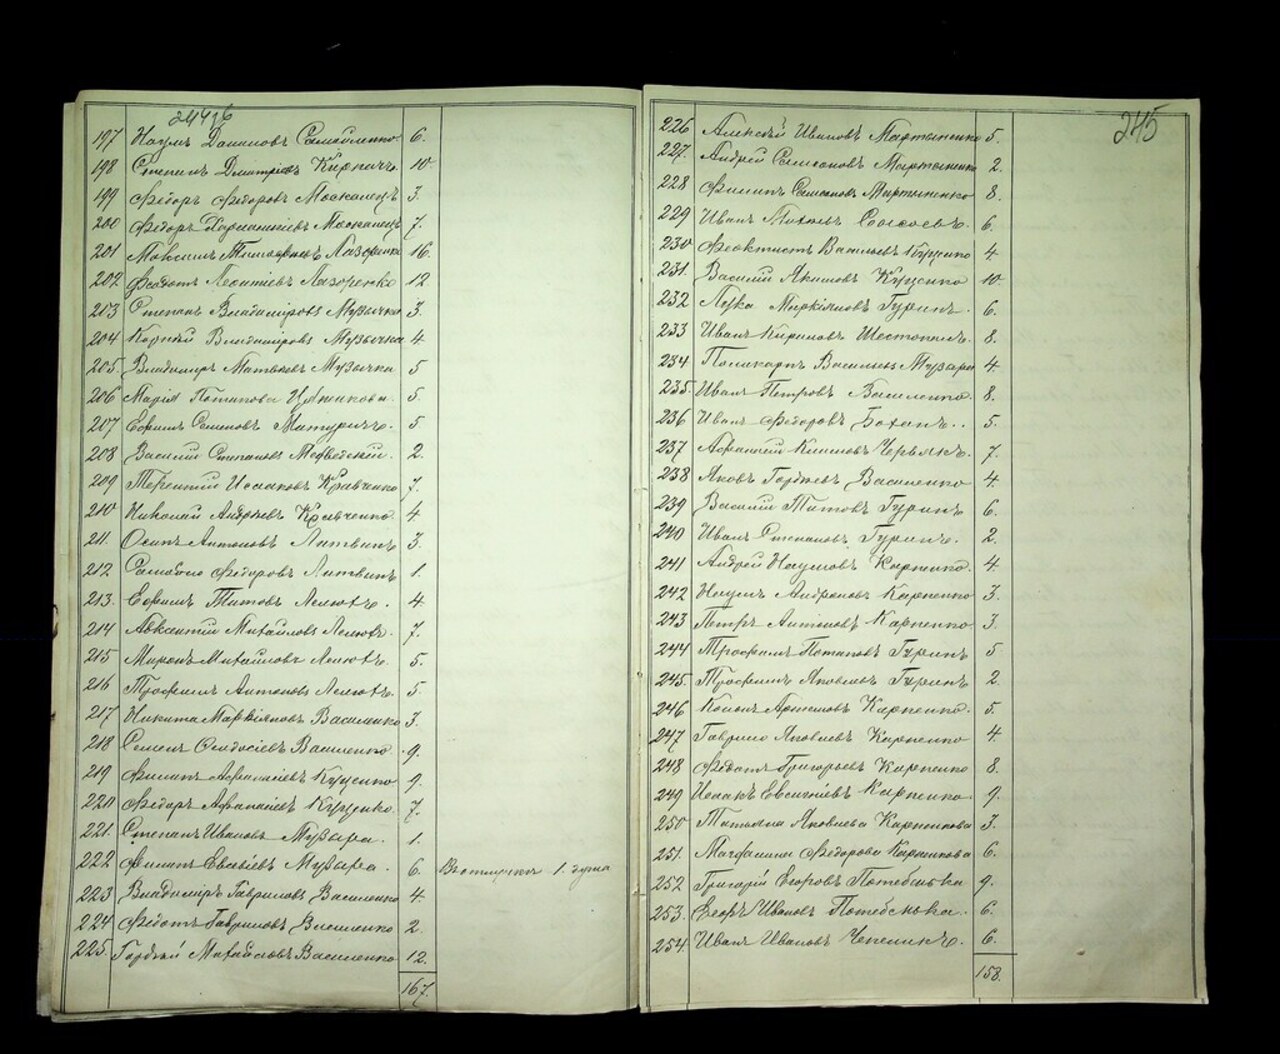 197 Наумъ Даниловъ Самойленко 6.
198 Степанъ Дмитріевъ Кирпичъ 10.
199 Федоръ Федоровъ Москалецъ 3.
200 Федоръ Москалецъ 7.
201 Максимъ Лазоренко 16.
202 Федотъ Леонтіевъ Лазоренко 12
203 Степанъ Владиміровъ Музычка 3.
204 Корній Владиміровъ Музычка 4
205 Владиміръ Матвѣевъ Музычка 5
206 Марія Потапова 5.
207 Ефимъ Семеновъ 5.
208 Василій Степановъ Медведскій. 2.
209 Терентій Исааковъ Кравченко 7.
210 Николай Андреевъ Кравченко 4
211. Осипъ Антоновъ Литвинъ 3.
212 Самойло Федоровъ Литвинъ 1.
213. Ефимъ Титовъ 4.
214 Авксентій Михайловъ 7.
215 Миронъ Михайловъ 5.
216 Трофимъ Антоновъ 5.
217 Никита Маркіяновъ Василенко 3.
218 Семенъ Феодосіевъ Василенко 9.
219 Филипъ Афанасіевъ Куценко 9.
220 Федоръ Афанасіевъ Куценко. 7.
221. Степанъ Ивановъ Музыра. 1.
222 Филипъ Евсевіевъ Музыра. 6. 1. душа
223 Владиміръ Гавриловъ Василенко 4.
224 Федотъ Гавриловъ Василенко 2.
225. Гордѣй Михайловъ Василенко 12.
167.
245
226 Алексѣй Ивановъ Мартыненко 5.
227. Андрей Самсоновъ Мартыненко 2.
228 Филипъ Самсоновъ Мартыненко 8.
229 Иванъ Сысоевъ. 6.
230 Феоктистъ Васильевъ Куценко 4
231. Василій Акимовъ Куценко 10.
232 Лука Маркіяновъ Гуринъ. 6.
233 Иванъ Кириловъ Шестопалъ. 8.
234 Поликарпъ Васильевъ Музыра 4.
235. Иванъ Петровъ Василенко. 8.
236 Иванъ Федоровъ Боханъ. 5.
237 Афанасій Климовъ Червякъ. 7.
238 Яковъ Гордѣевъ Василенко 4.
239 Василій Титовъ Гуринъ 6.
240 Иванъ Степановъ Гуринъ. 2.
241 Андрей Наумовъ Карпенко. 4
242 Наумъ Андроновъ Карпенко 3.
243 Петръ Антоновъ Карпенко 3.
244 Трофимъ Потаповъ Гуринъ 5
245. Трофимъ Яковлевъ Гуринъ 2.
246 Кононъ Артемовъ Карпенко. 5.
247 Гаврило Яковлевъ Карпенко 4.
248 Федотъ Григорьевъ Карпенко 8.
249 Исаакъ Евсигніевъ Карпенко 9.
250 Татьяна Яковлева Карпенкова 3.
251. Магдалина Федорова Карпенкова 6.
252 Григорій Егоровъ Потебенька 9.
253. Егоръ Ивановъ Потебенька. 6.
254. Иванъ Ивановъ Чепеликъ. 6.
158.